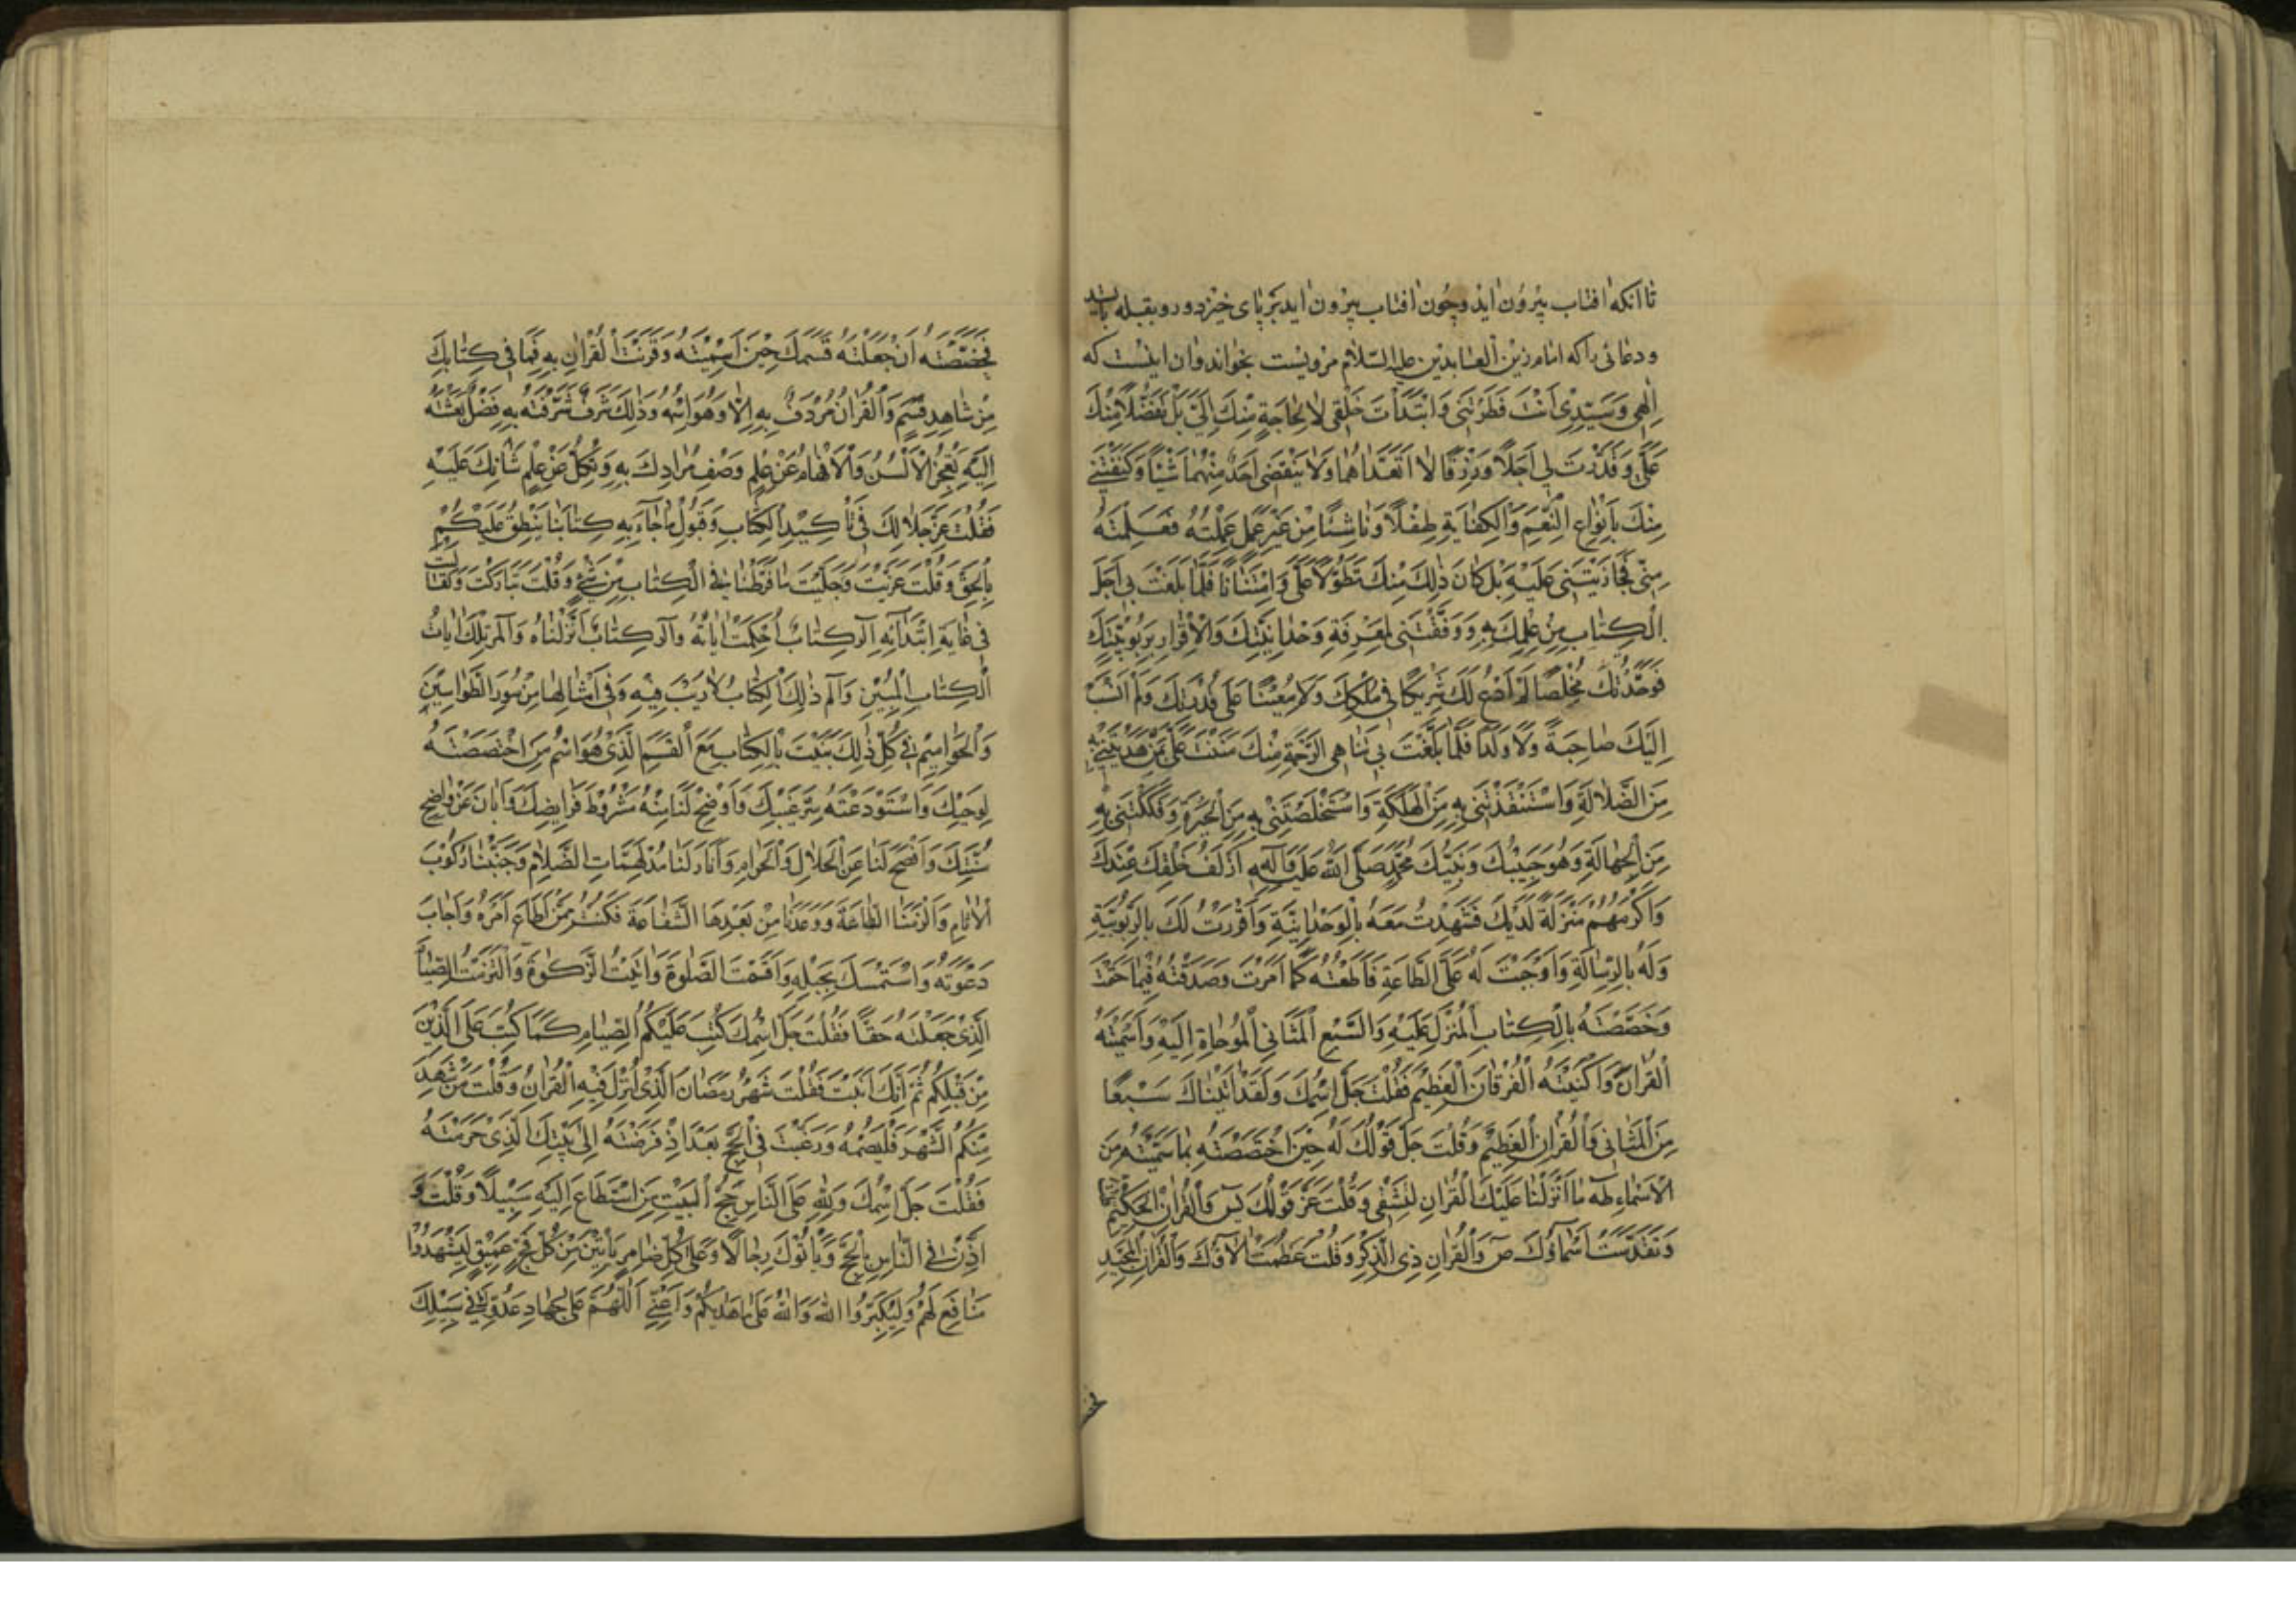 تا آنکه افتاب بیرون اید و چون افتاب بیرون اید بر پای خیزد و رو بقبله باشد
و دعائی را که امام زین العابدین علیه السلام مرویست بخواند و ان اینست که
اِلٰهِی وَسَیِّدِی اَنْتَ فَطَرْتَنِی وَابْتَدَأْتَ خَلْقِی لَا لِحَاجَةٍ مِنْكَ اِلَیَّ بَلْ تَفَضُّلًا مِنْكَ
عَلَیَّ وَقَدَّرْتَ لِی اَجَلًا وَرِزْقًا لَا اَتَعَدَّاهُمَا وَلَا یَنْقُصُنِی اَحَدٌ مِنْهُمَا شَیْئًا وَكَنَفْتَنِی
مِنْكَ بِاَنْوَاعِ النِّعَمِ وَالْكِفَایَةِ طِفْلًا وَنَاشِئًا مِنْ غَیْرِ عَمَلٍ عَمِلْتُهُ فَعَلِمْتَهُ
مِنِّی فَجَازَیْتَنِی عَلَیْهِ بَلْ كَانَ ذٰلِكَ مِنْكَ تَطَوُّلًا عَلَیَّ وَامْتِنَانًا فَلَمَّا بَلَغْتَ بِی اَجَلَ
الْكِتَابِ مِنْ عِلْمِكَ بِهِ وَوَفَّقْتَنِی لِمَعْرِفَةِ وَحْدَانِیَّتِكَ وَالْاِقْرَارِ بِرُبُوبِیَّتِكَ
فَوَحَّدْتُكَ مُخْلِصًا لَمْ اَدْعُ لَكَ شَرِیكًا فِی مُلْكِكَ وَلَا مُعِینًا عَلَی قُدْرَتِكَ وَلَمْ اَنْسُبْ
اِلَیْكَ صَاحِبَةً وَلَا وَلَدًا فَلَمَّا بَلَغْتَ بِی تَنَاهِیَ الرَّحْمَةِ مِنْكَ مَنَنْتَ عَلَیَّ بِمَنْ هَدَیْتَنِی بِهِ
مِنَ الضَّلَالَةِ وَاسْتَنْقَذْتَنِی بِهِ مِنَ الْهَلَكَةِ وَاسْتَخْلَصْتَنِی بِهِ مِنَ الْحَیْرَةِ وَفَكَكْتَنِی بِهِ
مِنَ الْجَهَالَةِ وَهُوَ حَبِیبُكَ وَنَبِیُّكَ مُحَمَّدٌ صَلَّی اللّٰهُ عَلَیْهِ وَآلِهِ اَزْلَفُ خَلْقِكَ عِنْدَكَ
وَاَكْرَمُهُمْ مَنْزِلَةً لَدَیْكَ فَشَهِدْتُ مَعَهُ بِالْوَحْدَانِیَّةِ وَاَقْرَرْتُ لَكَ بِالرُّبُوبِیَّةِ
وَلَهُ بِالرِّسَالَةِ وَاَوْجَبْتَ لَهُ عَلَیَّ الطَّاعَةِ فَاَطَعْتُهُ كَمَا اَمَرْتَ وَصَدَّقْتُهُ فِیمَا حَتَمْتَ
وَخَصَصْتَهُ بِالْكِتَابِ الْمُنْزَلِ عَلَیْهِ وَالسَّبْعِ الْمَثَانِی الْمُوحَاةِ اِلَیْهِ وَاَسْمَیْتَهُ
الْقُرْاٰنَ وَاَكْنَیْتَهُ الْفُرْقَانَ الْعَظِیمَ فَقُلْتَ جَلَّ اسْمُكَ وَلَقَدْ اٰتَیْنَاكَ سَبْعًا
مِنَ الْمَثَانِی وَالْقُرْاٰنَ الْعَظِیمَ وَقُلْتَ جَلَّ قَوْلُكَ لَهُ حِینَ اخْتَصَصْتَهُ بِمَا سَمَّیْتَهُ مِنَ
الْاَسْمَاءِ طٰهٰ مَا اَنْزَلْنَا عَلَیْكَ الْقُرْاٰنَ لِتَشْقٰی وَقُلْتَ عَزَّ قَوْلُكَ یٰسٓ وَالْقُرْاٰنِ الْحَكِیمِ
وَتَقَدَّسَتْ اَسْمَاؤُكَ صٓ وَالْقُرْاٰنِ ذِی الذِّكْرِ وَقُلْتَ عَظُمَتْ اٰلَاؤُكَ قٓ وَالْقُرْاٰنِ الْمَجِیدِ
فَخَصَصْتَهُ اَنْ جَعَلْتَهُ قَسَمَكَ حِینَ اَسْمَیْتَهُ وَقَرَنْتَ الْقُرْاٰنَ بِهِ فَمَا فِی كِتَابِكَ
مِنْ شَاهِدِ قَسَمٍ وَالْقُرْاٰنُ مُرْدَفٌ بِهِ اِلَّا وَهُوَ اسْمُهُ وَذٰلِكَ شَرَفٌ شَرَّفْتَهُ بِهِ وَفَضْلٌ بَعَثْتَهُ
اِلَیْهِ تَعْجِزُ الْاَلْسُنُ وَالْاَفْهَامُ عَنْ عِلْمِ وَصْفِ مُرَادِكَ بِهِ وَتَكِلُّ عَنْ عِلْمِ شَانِكَ عَلَیْهِ
فَقُلْتَ عَزَّ جَلَالُكَ فِی تَاْكِیدِ الْكِتَابِ وَقَبُولِ مَا جَاءَ بِهِ كِتَابُنَا یَنْطِقُ عَلَیْكُمْ
بِالْحَقِّ وَقُلْتَ عَزَیْتَ وَجَلَیْتَ مَا فَرَّطْنَا فِی الْكِتَابِ مِنْ شَیْءٍ وَقُلْتَ تَبَارَكْتَ وَتَعَالَیْتَ
فِی عَامَّةِ ابْتِدَائِهِ الٓرٰ كِتَابٌ اُحْكِمَتْ اٰیَاتُهُ وَالٓرٰ كِتَابٌ اَنْزَلْنَاهُ وَالٓمٓرٰ تِلْكَ اٰیَاتُ
الْكِتَابِ الْمُبِینِ وَالٓمٓ ذٰلِكَ الْكِتَابُ لَا رَیْبَ فِیهِ وَفِی اَمْثَالِهَا مِنْ سُوَرِ الطَّوَاسِینِ
وَالْحَوَامِیمِ فِی كُلِّ ذٰلِكَ بَیَّنْتَ بِالْكِتَابِ مَعَ الْقَسَمِ الَّذِی هُوَ اسْمُ مَنِ اخْتَصَصْتَهُ
لِوَحْیِكَ وَاسْتَوْدَعْتَهُ سِرَّ غَیْبِكَ وَاَوْضَحَ لَنَا مِنْهُ شُرُوطَ فَرَایِضِكَ وَاَبَانَ عَنْ وَاضِحِ
سُنَّتِكَ وَاَفْصَحَ لَنَا عَنِ الْحَلَالِ وَالْحَرَامِ وَاَنَارَ لَنَا مُدْلَهِمَّاتِ الظَّلَامِ وَجَنَّبَنَا رُكُوبَ
الْاٰثَامِ وَاَلْزَمَنَا الطَّاعَةَ وَوَعَدَنَا مِنْ بَعْدِهَا الشَّفَاعَةَ فَكُنْتُ مِمَّنْ اَطَاعَ اَمْرَهُ وَاَجَابَ
دَعْوَتَهُ وَاسْتَمْسَكَ بِحَبْلِهِ وَاَقَمْتُ الصَّلٰوةَ وَاٰتَیْتُ الزَّكٰوةَ وَالْتَزَمْتُ الصِّیَامَ
الَّذِی جَعَلْتَهُ حَقًّا فَقُلْتَ جَلَّ اسْمُكَ كُتِبَ عَلَیْكُمُ الصِّیَامُ كَمَا كُتِبَ عَلَی الَّذِینَ
مِنْ قَبْلِكُمْ ثُمَّ اِنَّكَ اَبَنْتَ فَقُلْتَ شَهْرُ رَمَضَانَ الَّذِی اُنْزِلَ فِیهِ الْقُرْاٰنُ وَقُلْتَ فَمَنْ شَهِدَ
مِنْكُمُ الشَّهْرَ فَلْیَصُمْهُ وَرَغَّبْتَ فِی الْحَجِّ بَعْدَ اِذْ فَرَضْتَهُ اِلٰی بَیْتِكَ الَّذِی حَرَّمْتَهُ
فَقُلْتَ جَلَّ اسْمُكَ وَلِلّٰهِ عَلَی النَّاسِ حِجُّ الْبَیْتِ مَنِ اسْتَطَاعَ اِلَیْهِ سَبِیلًا وَقُلْتَ وَ
اَذِّنْ فِی النَّاسِ بِالْحَجِّ یَاْتُوكَ رِجَالًا وَعَلٰی كُلِّ ضَامِرٍ یَاْتِینَ مِنْ كُلِّ فَجٍّ عَمِیقٍ لِیَشْهَدُوا
مَنَافِعَ لَهُمْ وَلِیُكَبِّرُوا اللّٰهَ عَلٰی مَا هَدٰیكُمْ وَاَعِنِّی اَللّٰهُمَّ عَلٰی جِهَادِ عَدُوِّكَ فِی سَبِیلِكَ